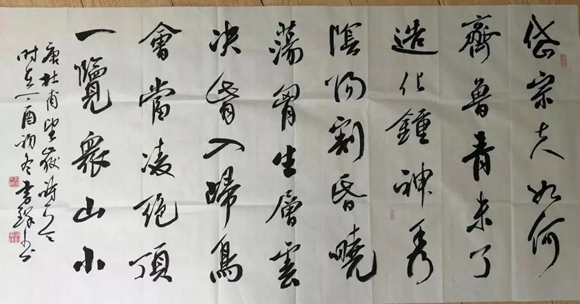 岱宗夫如何
齊魯青未了
造化鍾神秀
陰陽割昏曉
蕩胷生層雲
决眥入歸鳥
會當凌絕頂
一覽衆山小
唐杜甫望嶽詩
时在丁酉初冬書